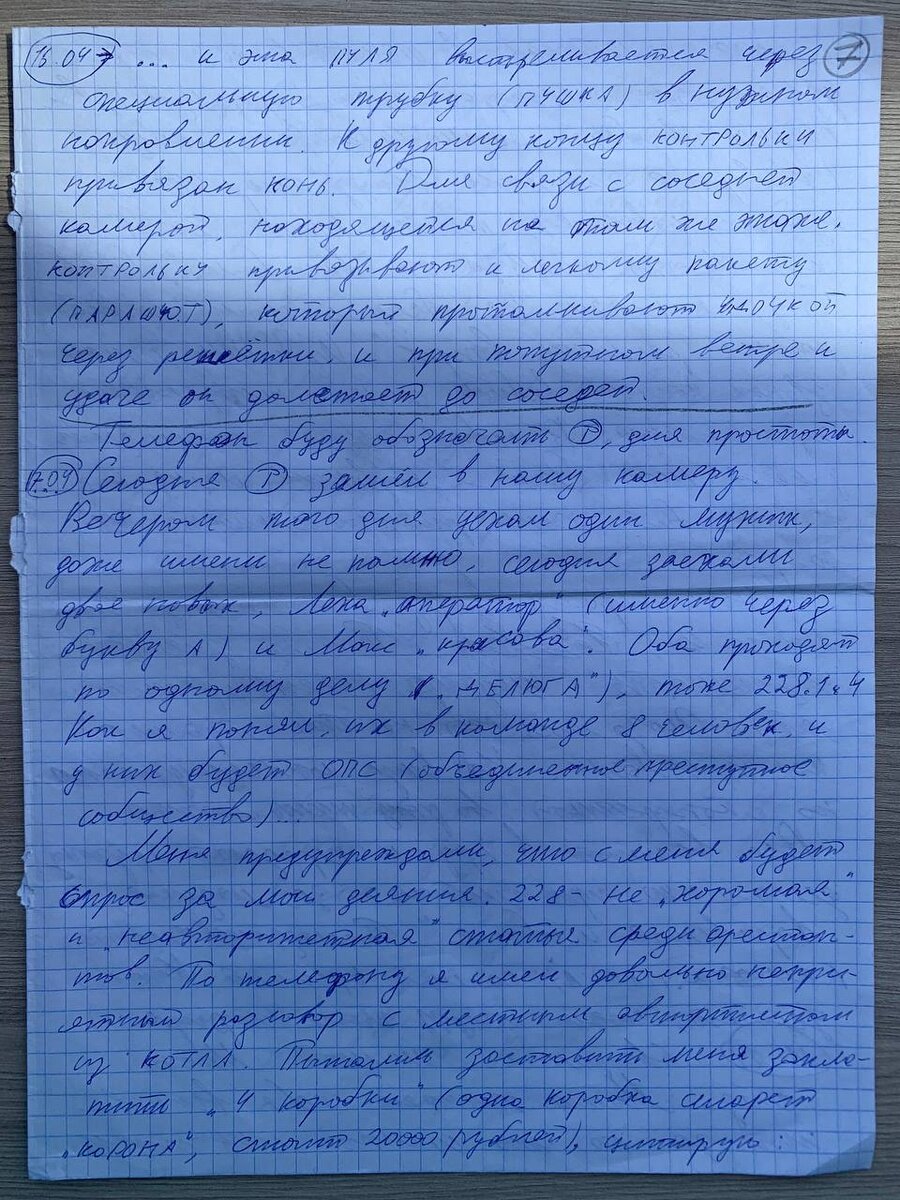 16.04→ ... и эта ПУЛЯ выстреливается через 7
специальную трубку (ПУШКА) в нужном
направлении. К другому концу КОНТРОЛЬКИ
привязан конь. Для связи с соседней
камерой, находящейся на том же этаже,
КОНТРОЛЬКУ привязывают к легкому пакету
(ПАРАШЮТ), который проталкивают УДОЧКОЙ
через решётки, и при попутном ветре и
удаче он долетает до соседей.
Телефон буду обозначать Т, для простоты.
Сегодня Т зашёл в нашу камеру.
Вечером того дня уехал один мужик,
даже имени не помню, сегодня заехали
двое новых, Леха „аператор" (именно через
букву А) и Макс „красава". Оба проходят
по одному делу („ДЕЛЮГА"), тоже 228.1 ч 4
Как я понял, их в команде 8 человек, и
у них будет ОПС (объединенное преступное
сообщество)...
Меня предупреждали, что с меня будет
спрос за мои деяния. 228 - не „хорошая"
и „неавторитетная" статья среди арестан-
тов. По телефону я имел довольно непри-
ятный разговор с местным авторитетом
из КОТЛА. Пытались заставить меня запла-
тить „4 коробки" (одна коробка сигарет
„КОРОНА", стоит 20000 рублей), цитирую: